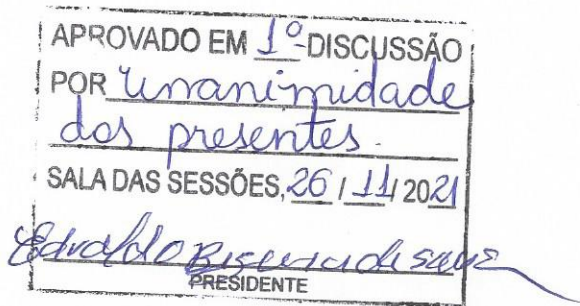 APROVADO EM 1º DISCUSSÃO
POR Unanimidade
dos presentes.
SALA DAS SESSÕES, 26 / 11 / 2021
Edvaldo
PRESIDENTE